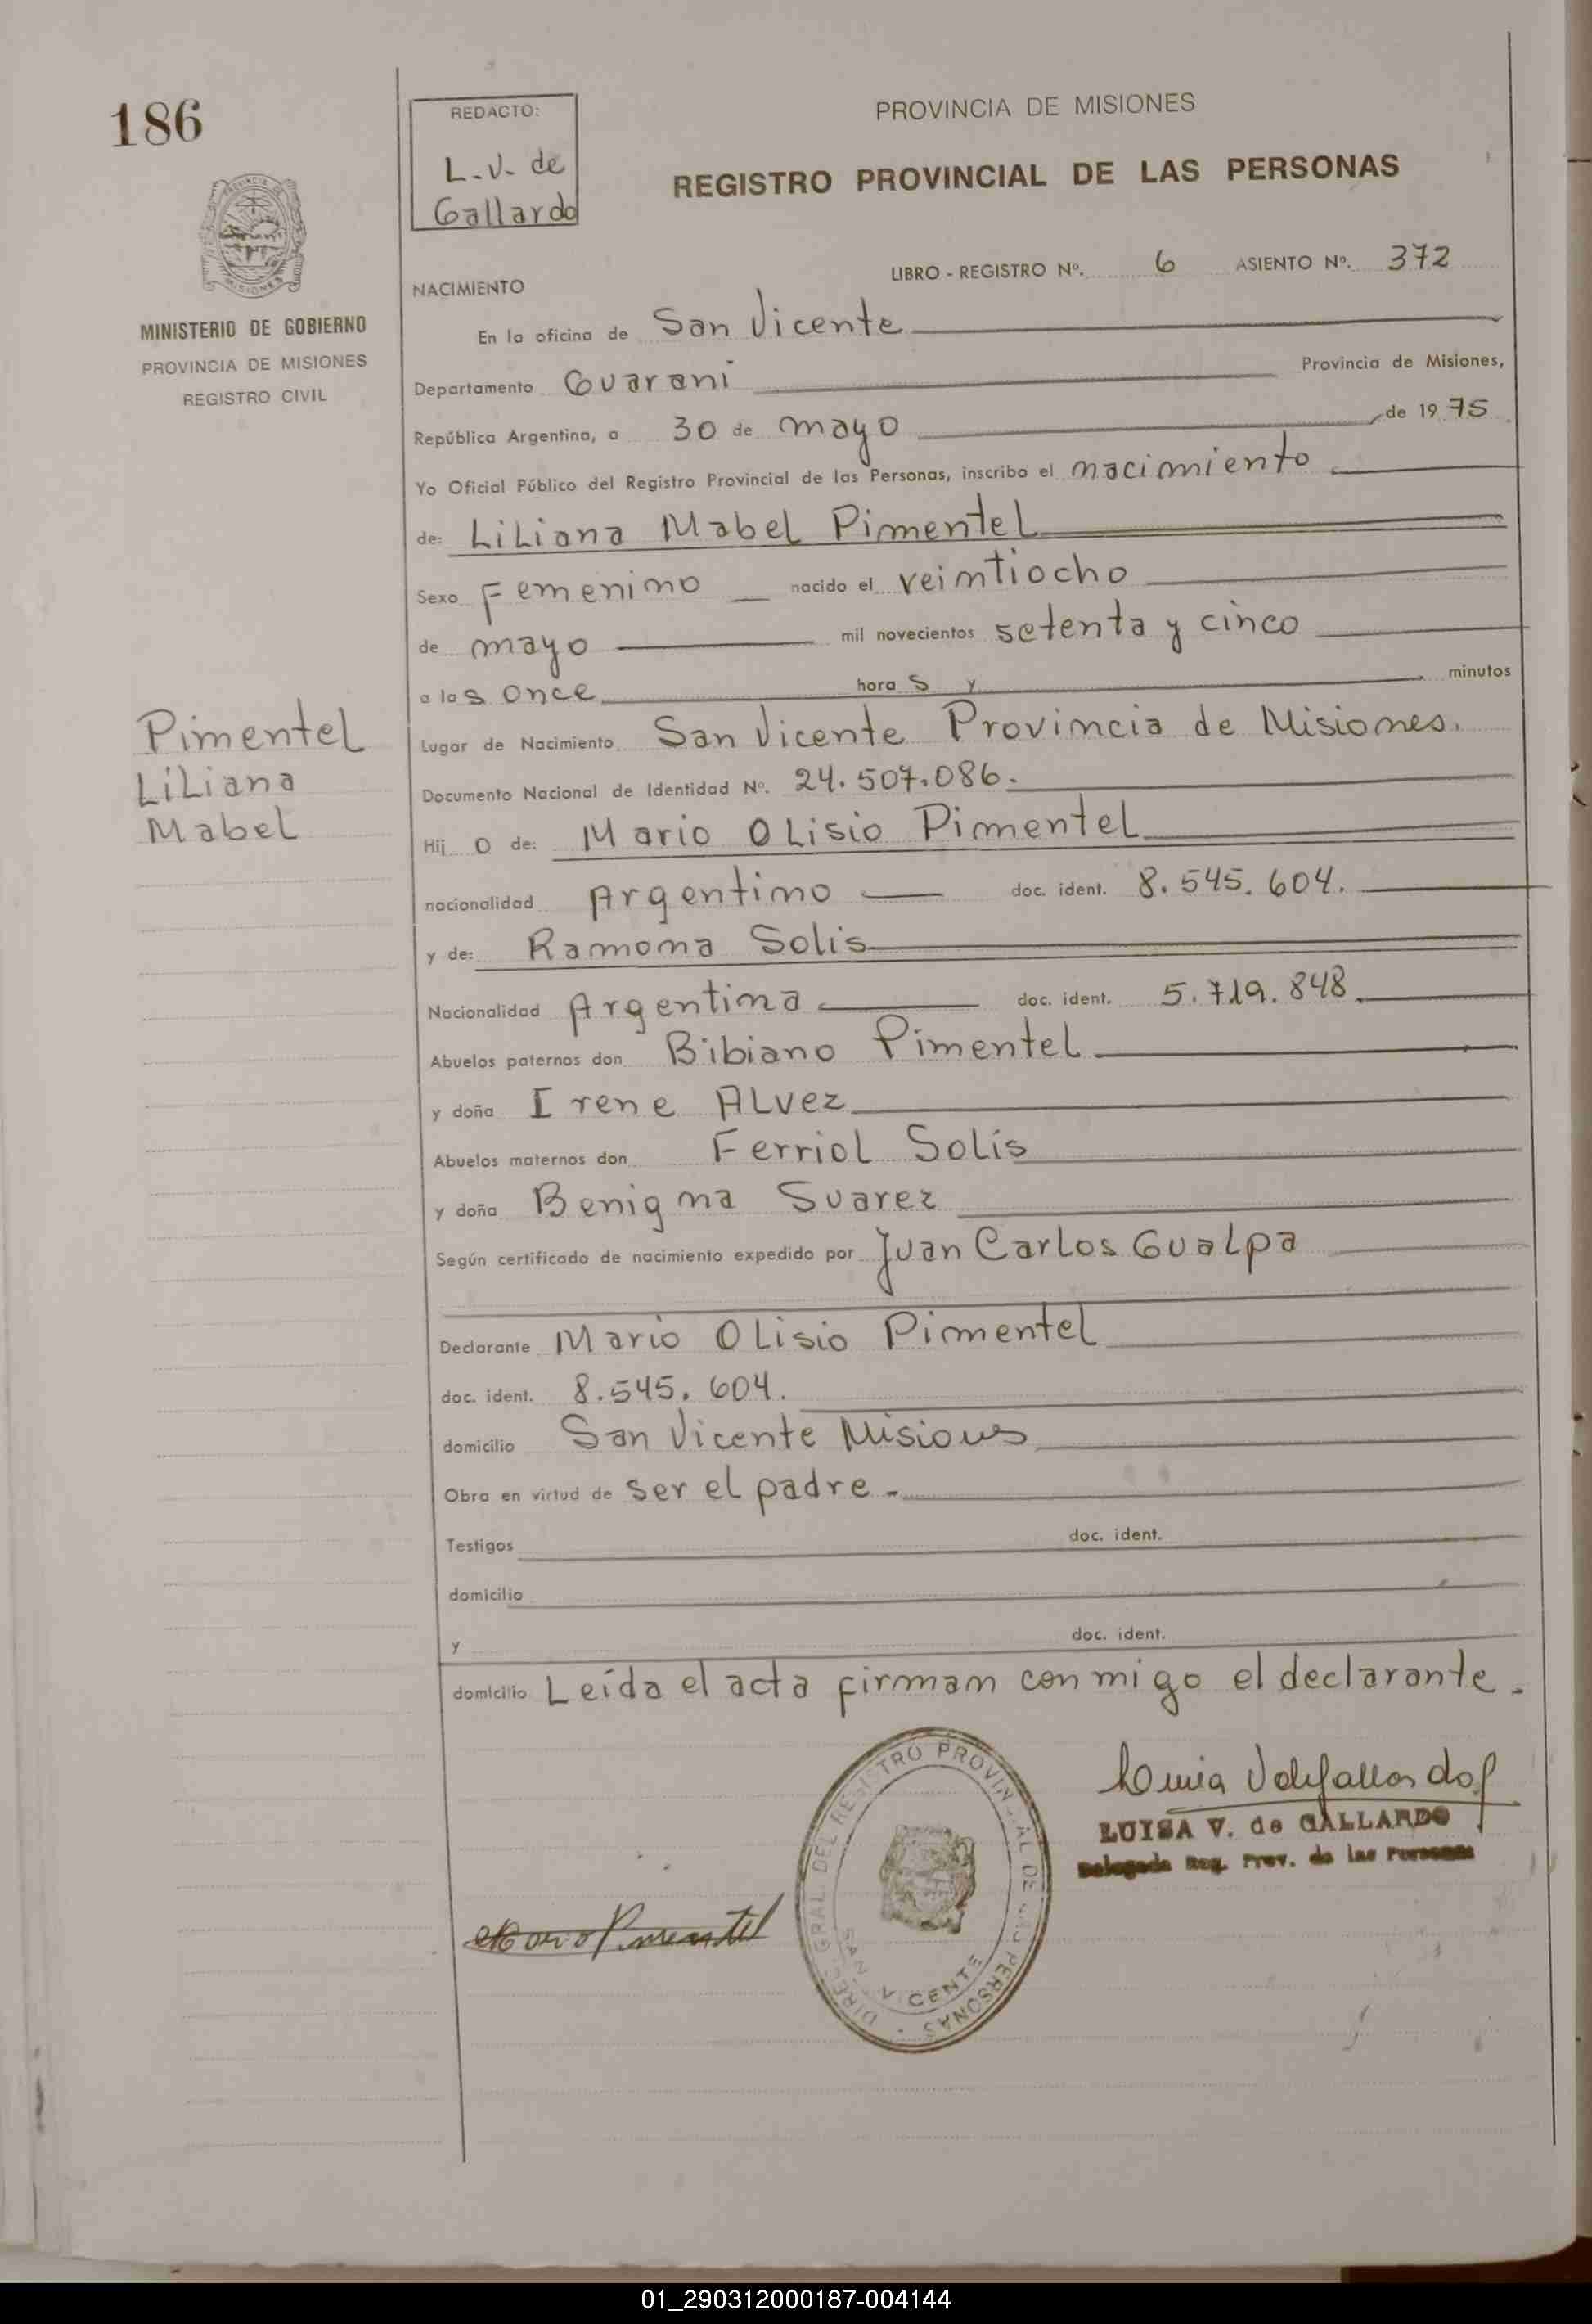 186
REDACTO:
L.V. de
Gallardo
PROVINCIA DE MISIONES
REGISTRO PROVINCIAL DE LAS PERSONAS
PROVINCIA DE
MISIONES
MINISTERIO DE GOBIERNO
PROVINCIA DE MISIONES
REGISTRO CIVIL
LIBRO - REGISTRO Nº. 6 ASIENTO Nº. 372
NACIMIENTO
En la oficina de San Vicente
Departamento Guarani Provincia de Misiones,
República Argentina, a 30 de mayo de 1975
Yo Oficial Público del Registro Provincial de las Personas, inscribo el nacimiento
de: Liliana Mabel Pimentel
Sexo Femenino nacido el veintiocho
de mayo mil novecientos setenta y cinco
a las once horas y minutos
Pimentel
Liliana
Mabel
Lugar de Nacimiento San Vicente Provincia de Misiones.
Documento Nacional de Identidad Nº. 24.507.086.
Hijo de: Mario Olisio Pimentel
nacionalidad Argentino doc. ident. 8.545.604.
y de: Ramona Solis
Nacionalidad Argentina doc. ident. 5.719.848.
Abuelos paternos don Bibiano Pimentel
y doña Irene Alvez
Abuelos maternos don Ferriol Solís
y doña Benigna Suarez
Según certificado de nacimiento expedido por Juan Carlos Gualpa
Declarante Mario Olisio Pimentel
doc. ident. 8.545.604.
domicilio San Vicente Misiones
Obra en virtud de ser el padre.
Testigos doc. ident.
domicilio
y doc. ident.
domicilio Leída el acta firman conmigo el declarante.
DIREC. GRAL. DEL REGISTRO PROVINCIAL DE LAS PERSONAS
SAN VICENTE
Luisa V de Gallardo
LUISA V. de GALLARDO
Delegada Reg. Prov. de las Personas
Mario Pimentel
01_290312000187-004144